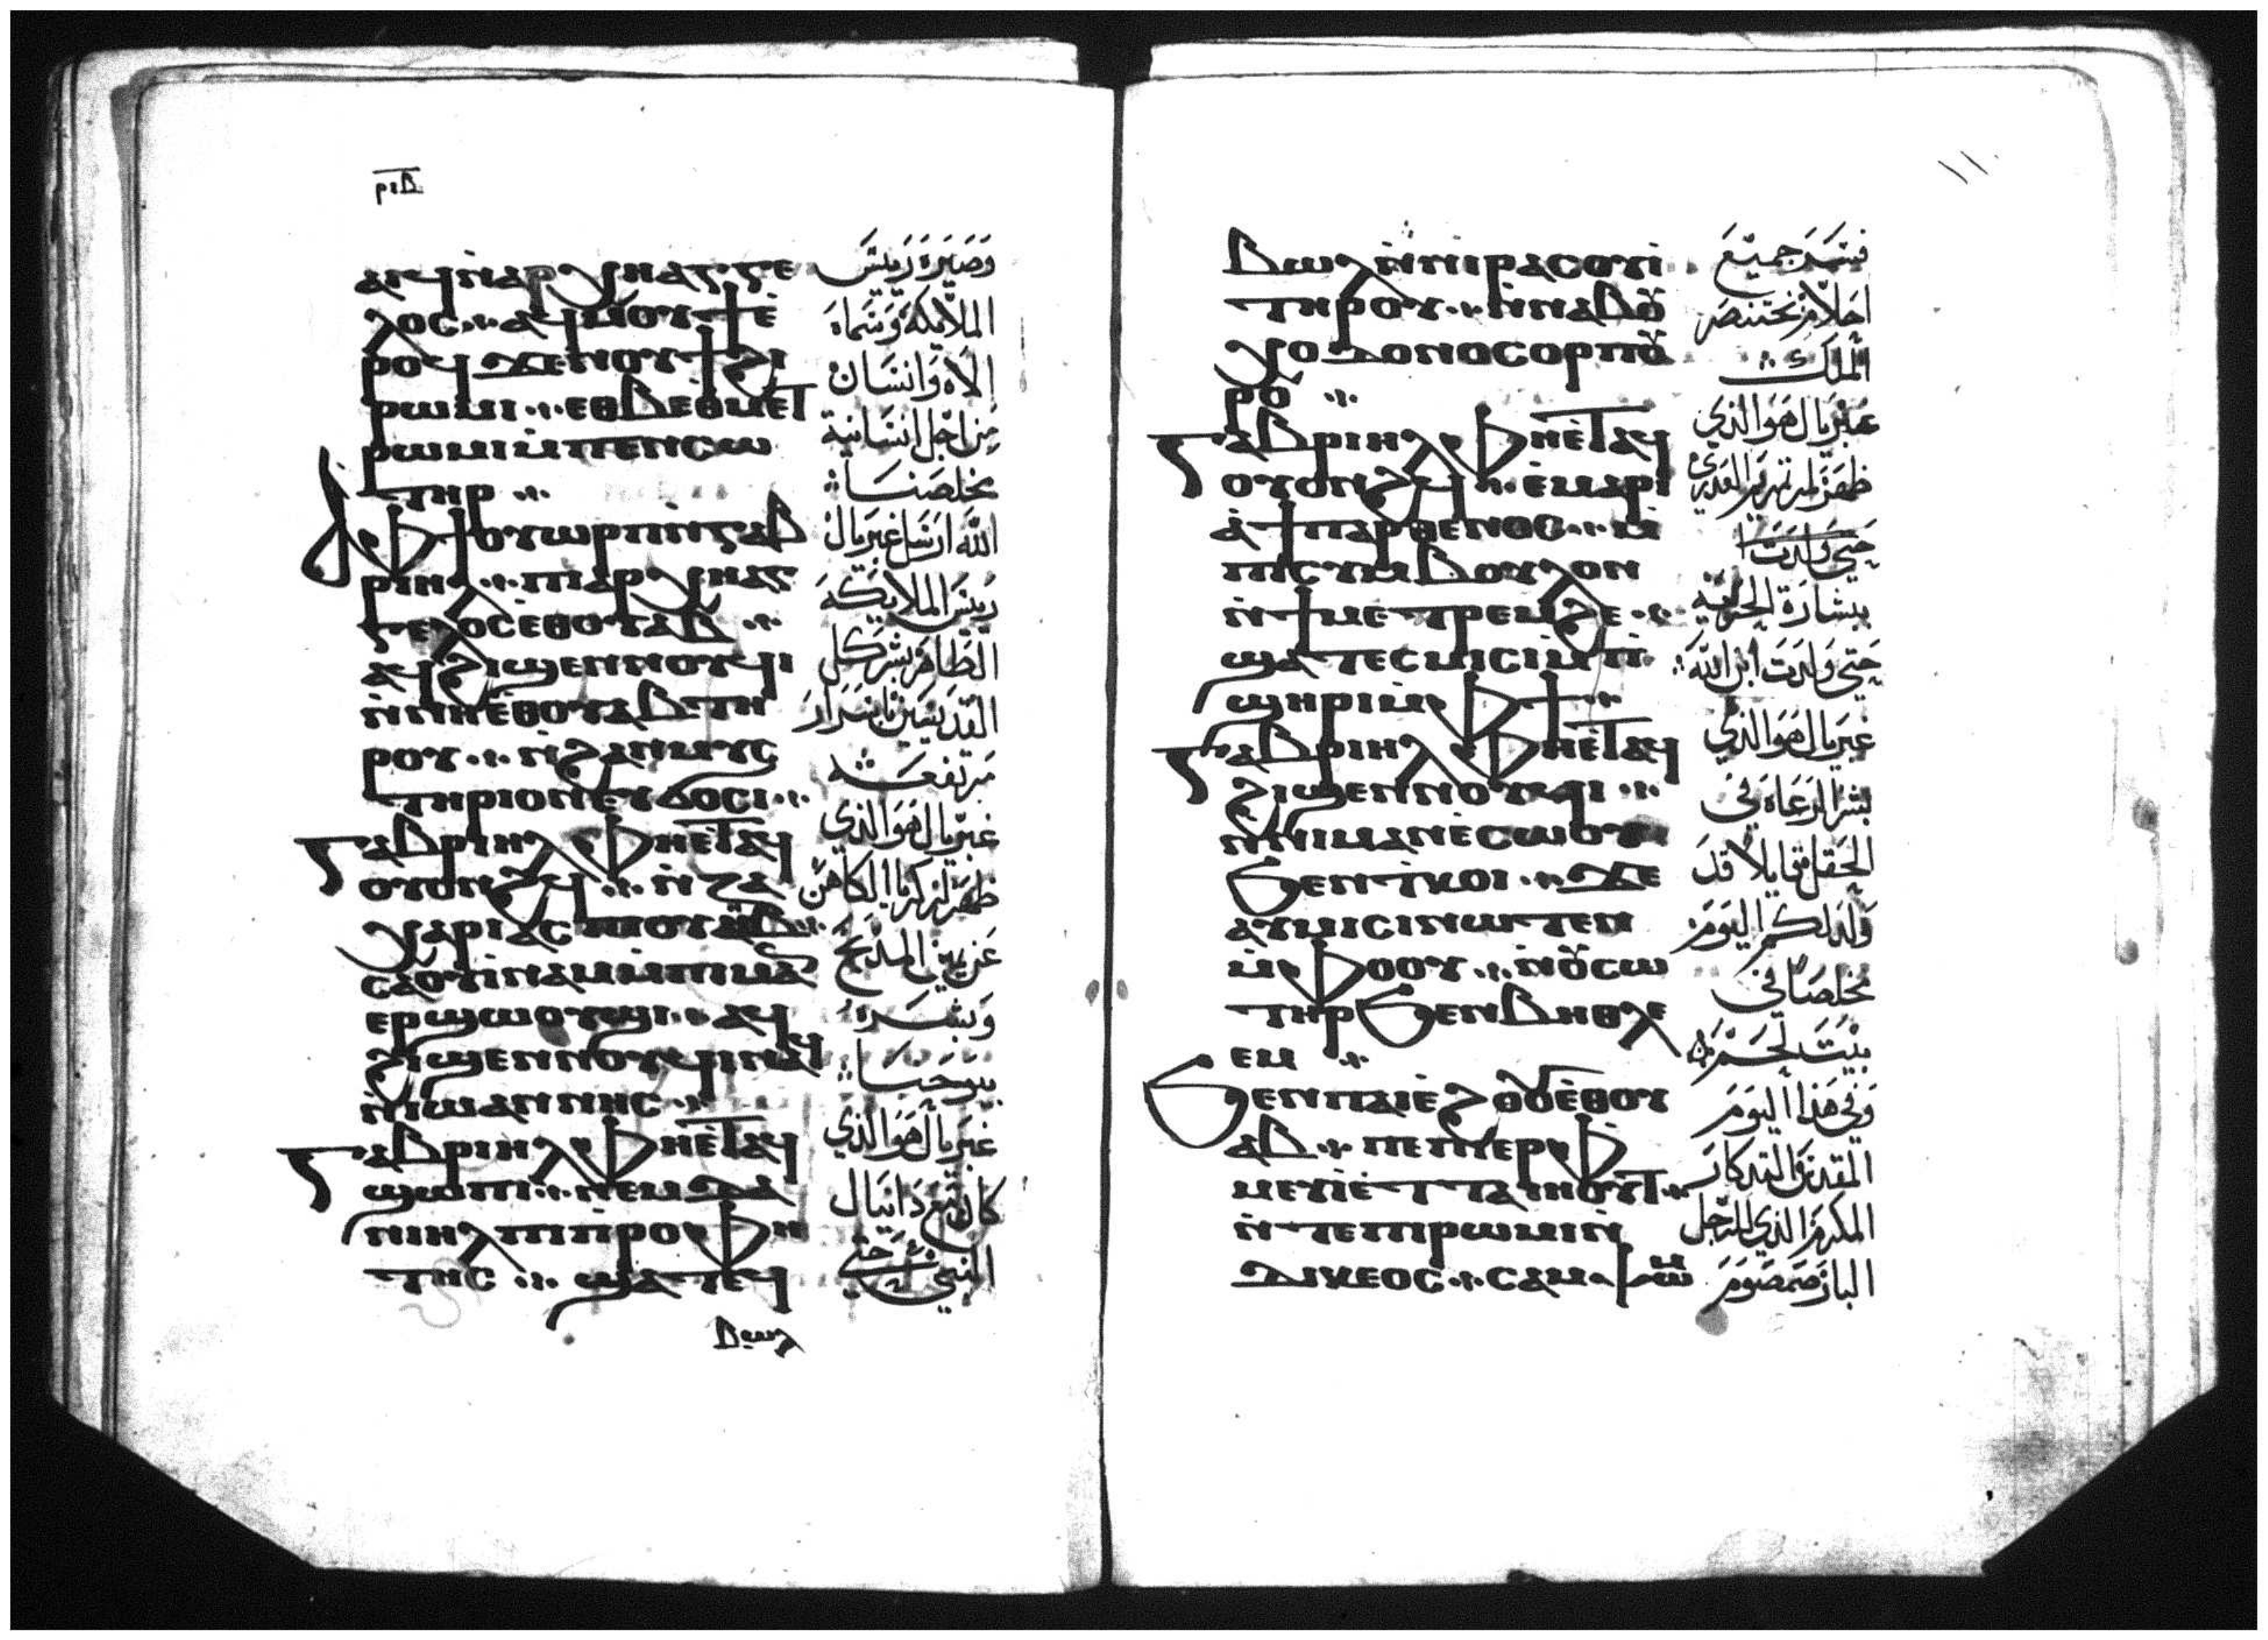 ⲣⲓⲃ
ⲁⲓϥⲛ̀ⲁⲣⲭⲏⲁⲅⲅⲉ
ⲗⲟⲥ ⲁϥⲙⲟⲩϯⲉ̀
ⲣⲟϥ ϫⲉⲛⲟⲩϯϩⲓ
ⲣⲱⲙⲓ ⲉⲑⲃⲉⲑⲙⲉⲧ
ⲣⲱⲙⲓⲙ̀ⲡⲉⲛⲥⲱ
ⲧⲏⲣ
ⲁⲫϯⲟⲩⲱⲣⲡⲛ̀ⲅⲁⲃ
ⲣⲓⲏⲗ ⲡⲓⲁⲣⲭⲏⲁⲅ
ⲅⲉⲗⲟⲥⲉⲑⲟⲩⲁⲃ
ⲁϥϩⲓϣⲉⲛⲛⲟⲩϥⲓ
ⲛ̀ⲛⲏⲉ̀ⲑⲟⲩⲁⲃⲧⲏ
ⲣⲟⲩ ⲛ̀ϩⲁⲛⲙⲩⲥ
ⲧⲏⲣⲓⲟⲛⲉⲩϭⲟⲥⲓ
ⲅⲁⲃⲣⲓⲏⲗ ⲫⲏⲉ̀ⲧⲁϥ
ⲟⲩⲟⲛϩϥ ⲛ̀ⲍⲁ
ⲭⲁⲣⲓⲁⲥⲡⲓⲟⲩⲏⲃ
ⲥⲁⲟⲩⲓ̀ⲛⲁⲙⲙ̀ⲡⲓⲙⲁ
ⲉⲣϣⲱⲟⲩϣⲓ ⲁϥ
ϩⲓϣⲉⲛⲛⲟⲩϥⲓⲛⲁϥ
ⲛ̀ⲓⲱⲁⲛⲛⲏⲥ
ⲅⲁⲃⲣⲓⲏⲗ ⲫⲏⲉ̀ⲧⲁϥ
ϣⲱⲡⲓ ⲛⲉⲙⲇⲁ
ⲛⲓⲏⲗ ⲡⲓⲡ̀ⲣⲟⲫⲏ
ⲧⲏⲥ ϣⲁⲧⲉϥ
ⲃⲱⲗ
وصيره رييس
الملايكة وسماه
الاه وانسان
من اجل انسانية
مخلصنا
الله ارسل غبريال
رييس الملايكة
الطاهر بشر كل
القديسين باسرار
مرتفعة
غبريال هو الذي
ظهر لزكريا الكاهن
عن يمين المذبح
وبشره
بيوحنا
غبريال هو الذي
كان مع دانيال
النبي حتي
ⲃⲱⲗⲛ̀ⲛⲓⲣⲁⲥⲟⲩⲓ̀
ⲧⲏⲣⲟⲩ ⲛ̀ⲛⲁⲃⲟⲩ
ⲭⲟⲇⲟⲛⲟⲥⲟⲣⲡⲟⲩ
ⲣⲟ
ⲅⲁⲃⲣⲓⲏⲗ ⲫⲏⲉ̀ⲧⲁϥ
ⲟⲩⲟⲛϩϥ ⲉ̀ⲙⲁⲣⲓ
ⲁ̀ϯⲡⲁⲣⲑⲉⲛⲟⲥ ⲙ̀
ⲡⲓⲥⲩⲙⲃⲟⲩⲗⲟⲛ
ⲛ̀ϯⲙⲉⲧⲣⲉⲙϩⲉ
ϣⲁⲧⲉⲥⲙⲓⲥⲓⲙ̀ⲡⲓ
ϣⲏⲣⲓⲙ̀ⲫϯ
ⲅⲁⲃⲣⲓⲏⲗ ⲫⲏⲉ̀ⲧⲁϥ
ϩⲓϣⲉⲛⲛⲟⲩϥⲓ
ⲛ̀ⲛⲓⲙⲁⲛⲉ̀ⲥⲱⲟⲩ
ϧⲉⲛⲧⲕⲟⲓ ϫⲉ
ⲁⲩⲙⲓⲥⲓⲛⲱⲧⲉⲛ
ⲙ̀ⲫⲟⲟⲩ ⲛ̀ⲟⲩⲥⲱ
ⲧⲏⲣϧⲉⲛⲃⲏⲑⲗⲉ
ⲉⲙ
ϧⲉⲛⲡⲁⲓⲉ̀ϩⲟⲟⲩⲉ̀ⲑⲟⲩ
ⲁⲃ ⲡⲉⲡⲉⲣⲫ
ⲙⲉⲩⲓⲉ̀ⲧⲧⲁⲓⲏⲟⲩⲧ
ⲛ̀ⲧⲉⲡⲓⲣⲱⲙⲓⲛ̀
ⲇⲓⲕⲉⲟⲥ
ففسر جميع
احلام بختنصر
الملك
غبريال هو الذي
ظهر لمريم العذري
حتي ولدت
ببشارة الحرية
حتي ولدت ابن الله
غبريال هو الذي
بشر الرعاه في
الحقل قايلا قد
ولد لكم اليوم
مخلصا في
بيت لحم
وفي هذا اليوم
المقدس التدكار
المكرم الذي للرجل
البار